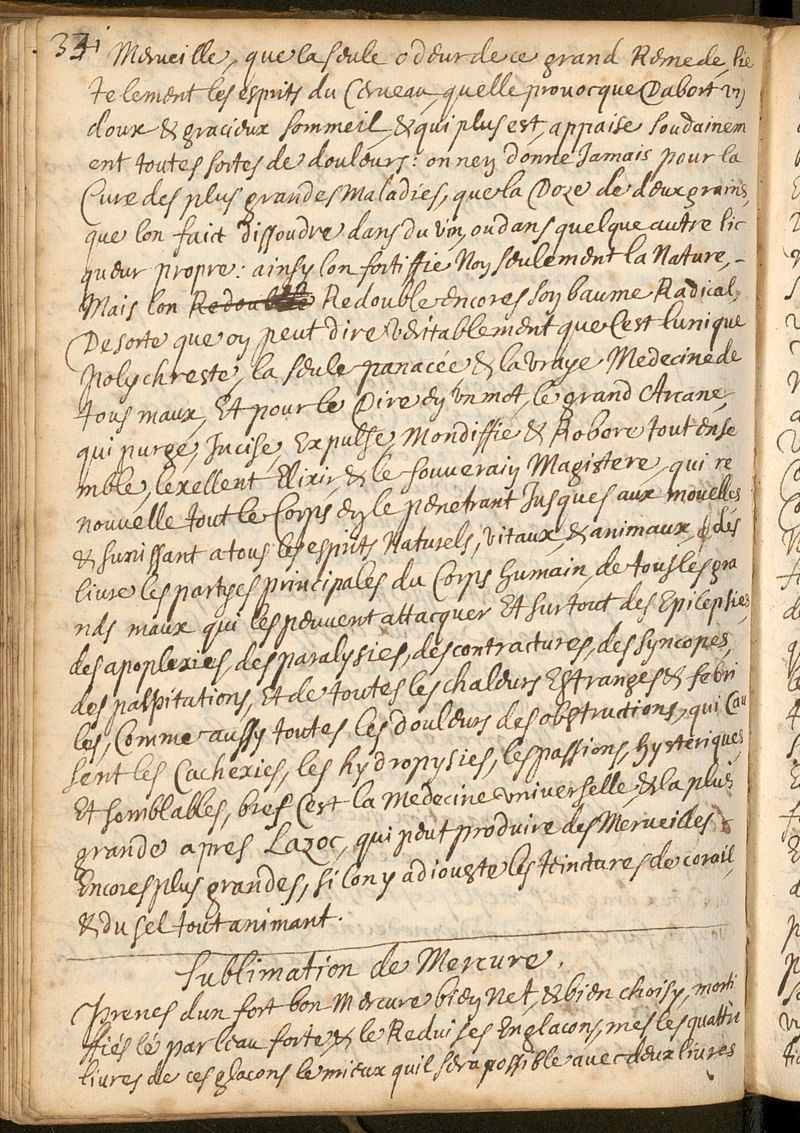 334
Merveille, que la seule odeur de ce grand Remede, lie
telement les esprits du Cerveau, quelle provocque Dabort vn
doux & gracieux sommeil, & qui plus est, appaise soudainem
ent toutes sortes de douleurs: on nen donne Jamais pour la
Cure des plus grandes Maladies, que la Doze de deux grains,
que lon faict dissoudre dans du vin, ou dans quelque autre lic
queur propre: ainsy lon fortiffie Non seulement la Nature, -
Mais lon Redouble encores son baume Radical,
De sorte que on peut dire veritablement que Cest lunique
Polychreste, la seule panacée & la vraye Medecine de
tous maux, Et pour le Dire en vn mot, le grand Arcane,
qui purge, Incise, Expulse, Mondiffie & Robore tout ense
mble, lexellent Elixir, & le souverain Magistere, qui re
nouvelle tout le Corps en le penetrant Jusques aux mouelles
& sunissant a tous les esprits Naturels, vitaux, & animaux, & dés
livre les partyes principales du Corps humain, de tous les gra
nds maux qui les peuvent attacquer Et sur tout des Epilepsies,
des apoplexies, des paralysies, des contractures, des syncopes,
des palpitations, Et de toutes les chaleurs Estranges & febri
les, Comme aussy toutes les douleurs des obstructions, qui Cau
sent les Cachexies, les hydropysies, les passions, hysteriques,
Et semblables, bref Cest la Medecine vniverselle, & la plus
grande apres Lazoc, qui peut produire des Merveilles
Encores plus grandes, si lon y adiouste les teintures de corail,
& du sel tout animant.
Sublimation de Mercure.
Prenes dun fort bon Mercure bien Net, & bien choisy, morti
ffiés lé par leau forte & le Reduises En glacons, mesles quattre
livres de ces glacons le mieux quil sera possible avec deux livres